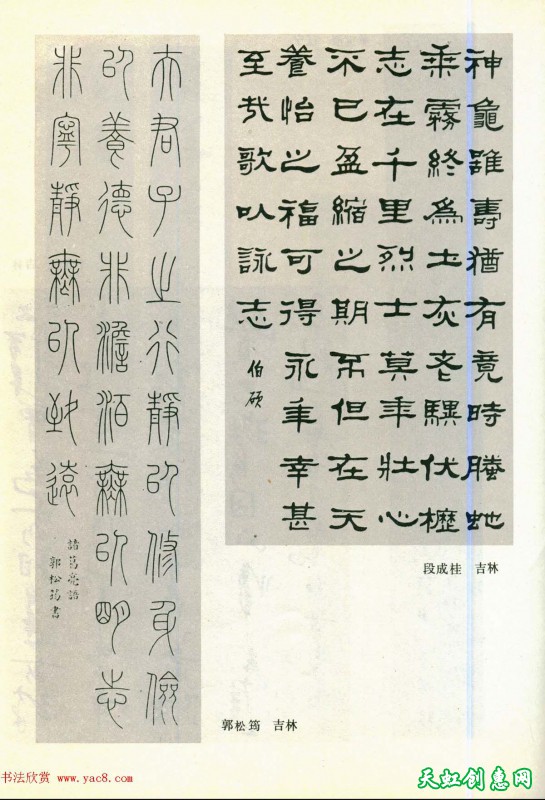 神龜雖壽猶有竟時螣虵
乘霧終為土灰老驥伏櫪
志在千里烈士莫年壯心
不已盈縮之期不但在天
養怡之福可得永年幸甚
至哉歌以詠志
伯碩
段成桂 吉林
夫君子之行靜以修身儉
以養德非澹泊無以明志
非寧靜無以致遠
諸葛亮語
郭松筠書
郭松筠 吉林
书法欣赏 www.yac8.com
天虹创意网